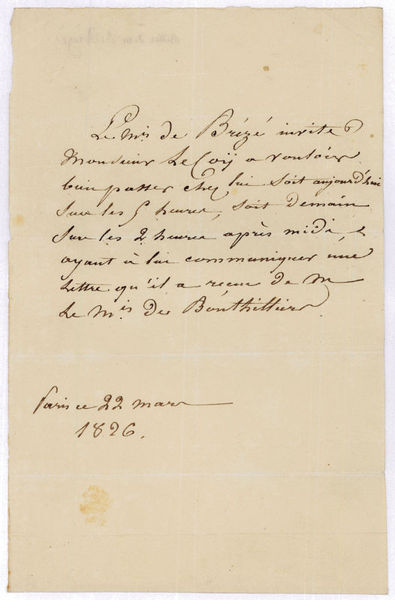 Le Mis de Brézé invite
Monsieur Le Coij a vouloir
bien passer chez lui soit aujourd'hui
sur les 5 heures, soit demain
sur les 2 heures après midi,
ayant à lui communiquer une
Lettre qu'il a reçue de M
Le Mis de Bouthillier
Paris ce 22 mars
1826.